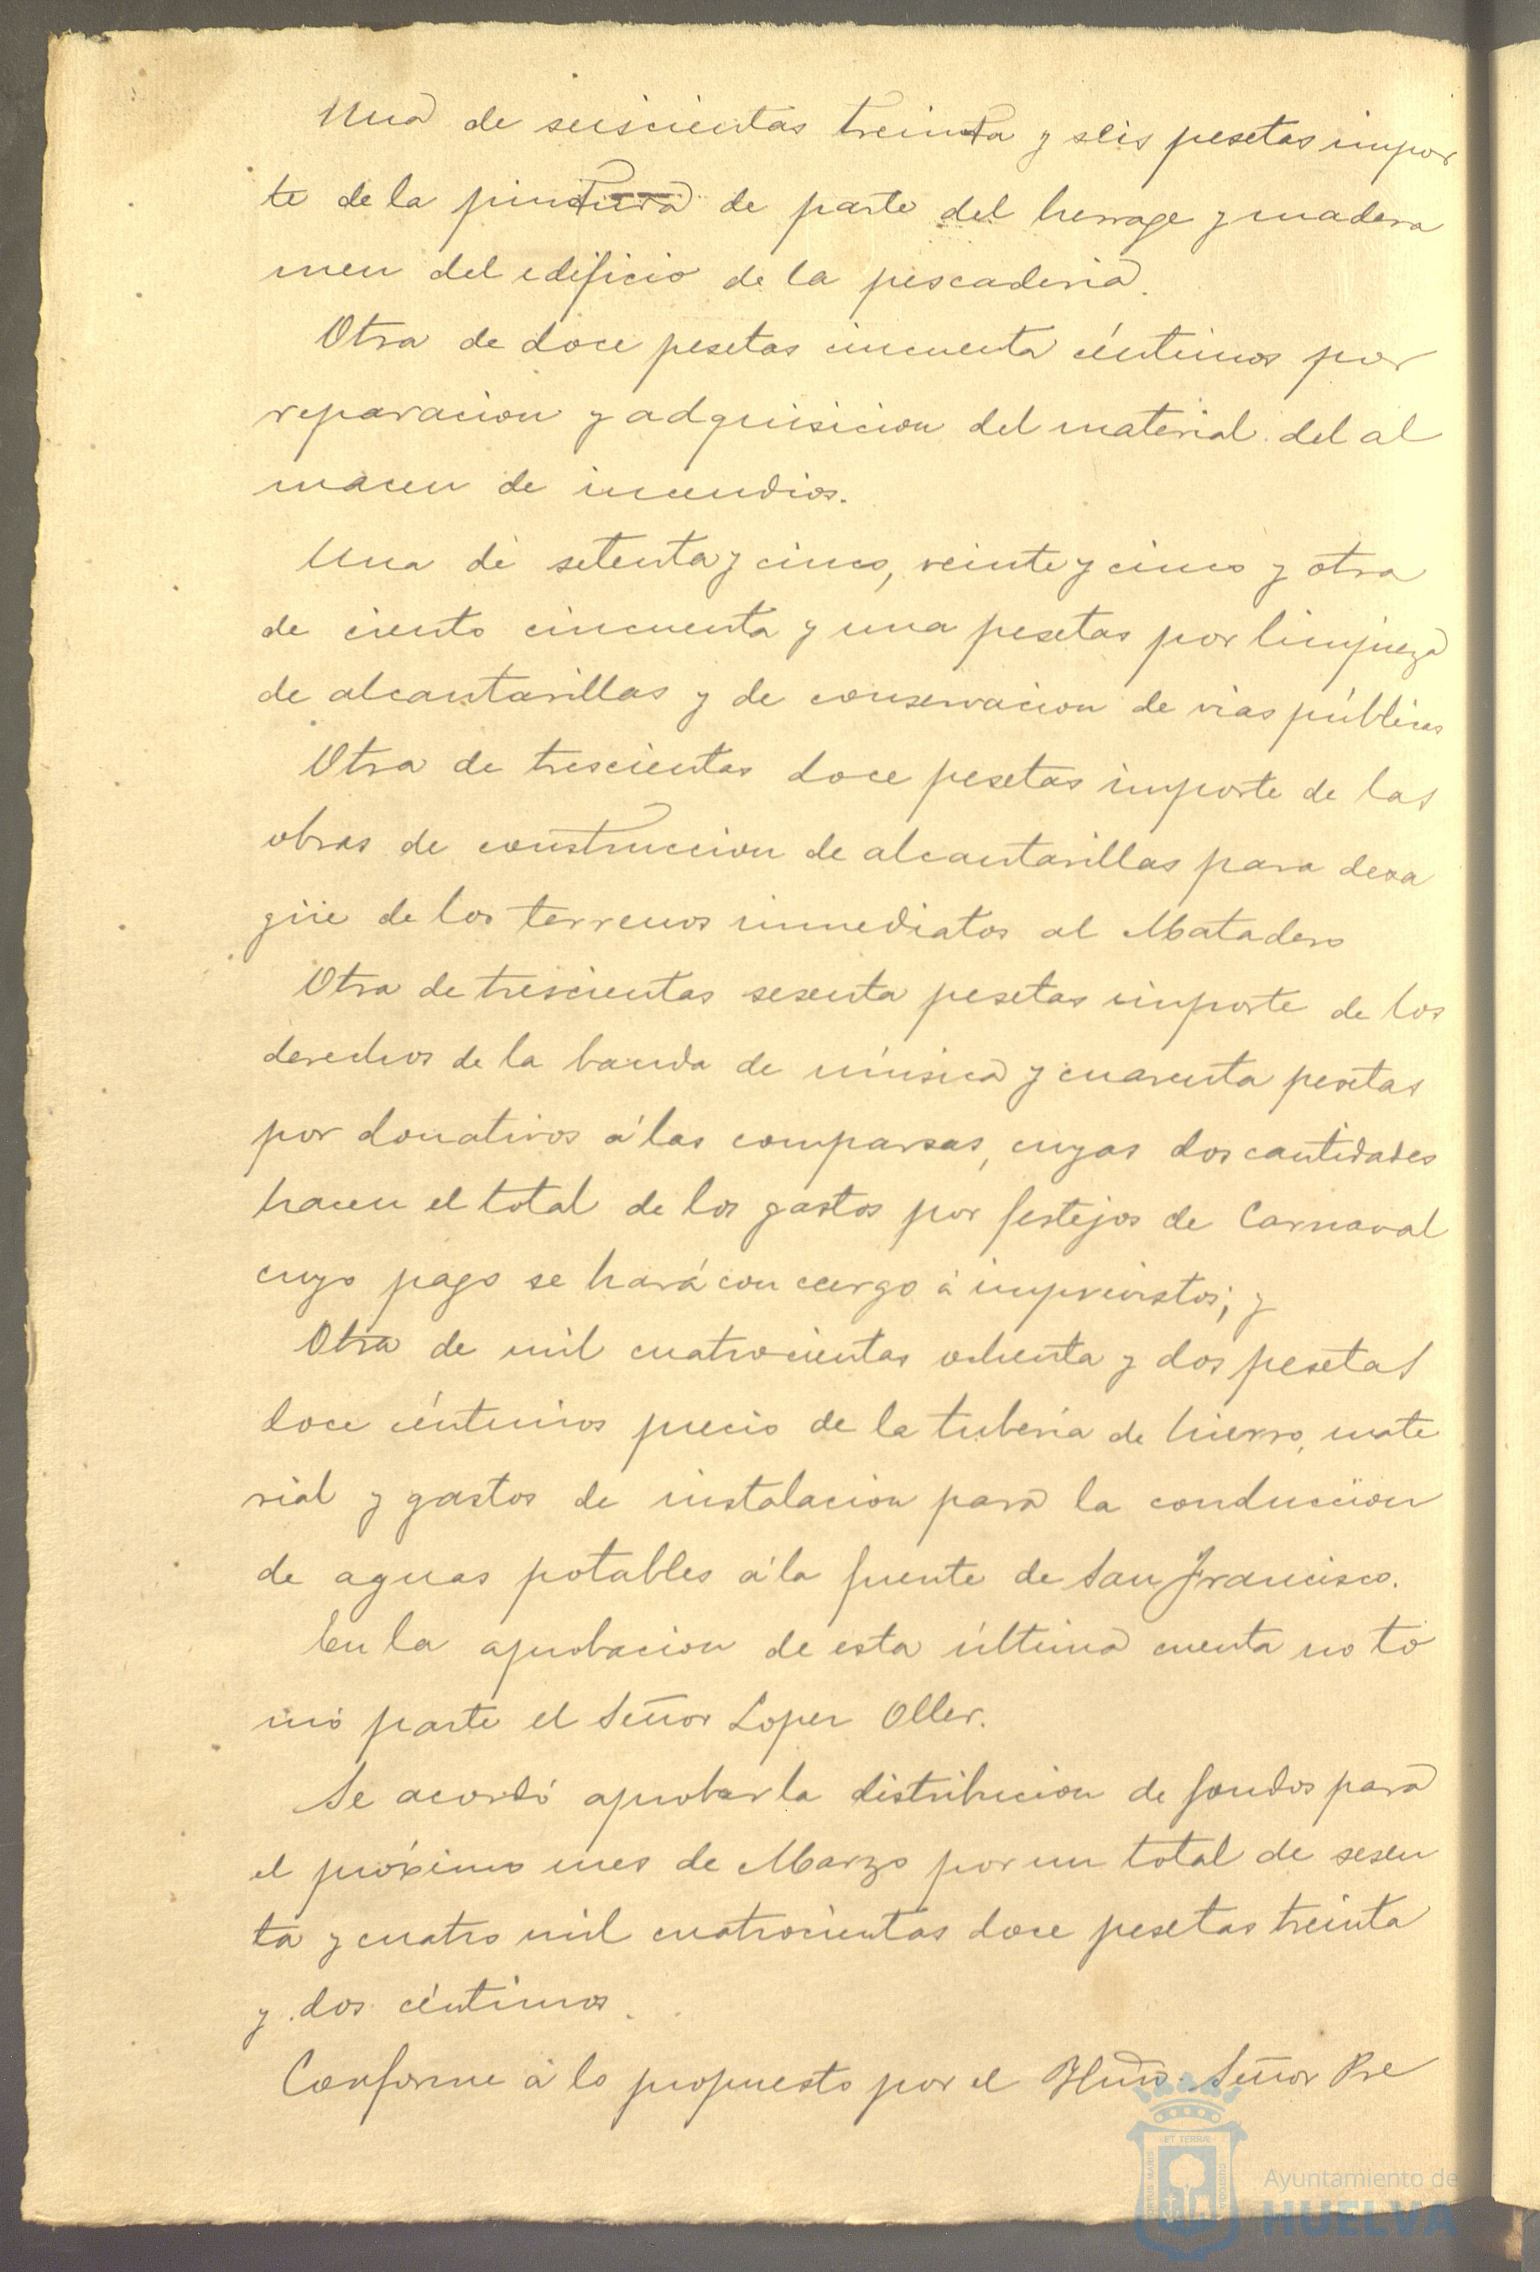 Una de seiscientas treinta y seis pesetas impor
te de la pintura de parte del herrage y madera
men del edificio de la pescaderia.
Otra de doce pesetas cincuenta céntimos por
reparacion y adquisicion del material del al
macen de incendios.
Una de setenta y cinco, veinte y cinco y otra
de ciento cincuenta y una pesetas por limpieza
de alcantarillas y de conservacion de vias públicas
Otra de trescientas doce pesetas importe de las
obras de construccion de alcantarillas para desa
güe de los terrenos inmediatos al Matadero
Otra de trescientas sesenta pesetas importe de los
derechos de la banda de música y cuarenta pesetas
por donativos á las comparsas, cuyas dos cantidades
hacen el total de los gastos por festejos de Carnaval
cuyo pago se hará con cargo á imprevistos; y
Otra de mil cuatrocientas ochenta y dos pesetas
doce céntimos precio de la tuberia de hierro, mate
rial y gastos de instalacion para la conduccion
de aguas potables á la fuente de San Francisco.
En la aprobacion de esta última cuenta no to
mó parte el Señor Lopez Oller.
Se acordó aprobar la distribucion de fondos para
el próximo mes de Marzo por un total de sesen
ta y cuatro mil cuatrocientas doce pesetas treinta
y dos céntimos.
Conforme á lo propuesto por el Yltmo. Señor Pre
ET TERRAE
PORTUS MARIS
CUSTODIA
Ayuntamiento de
HUELVA